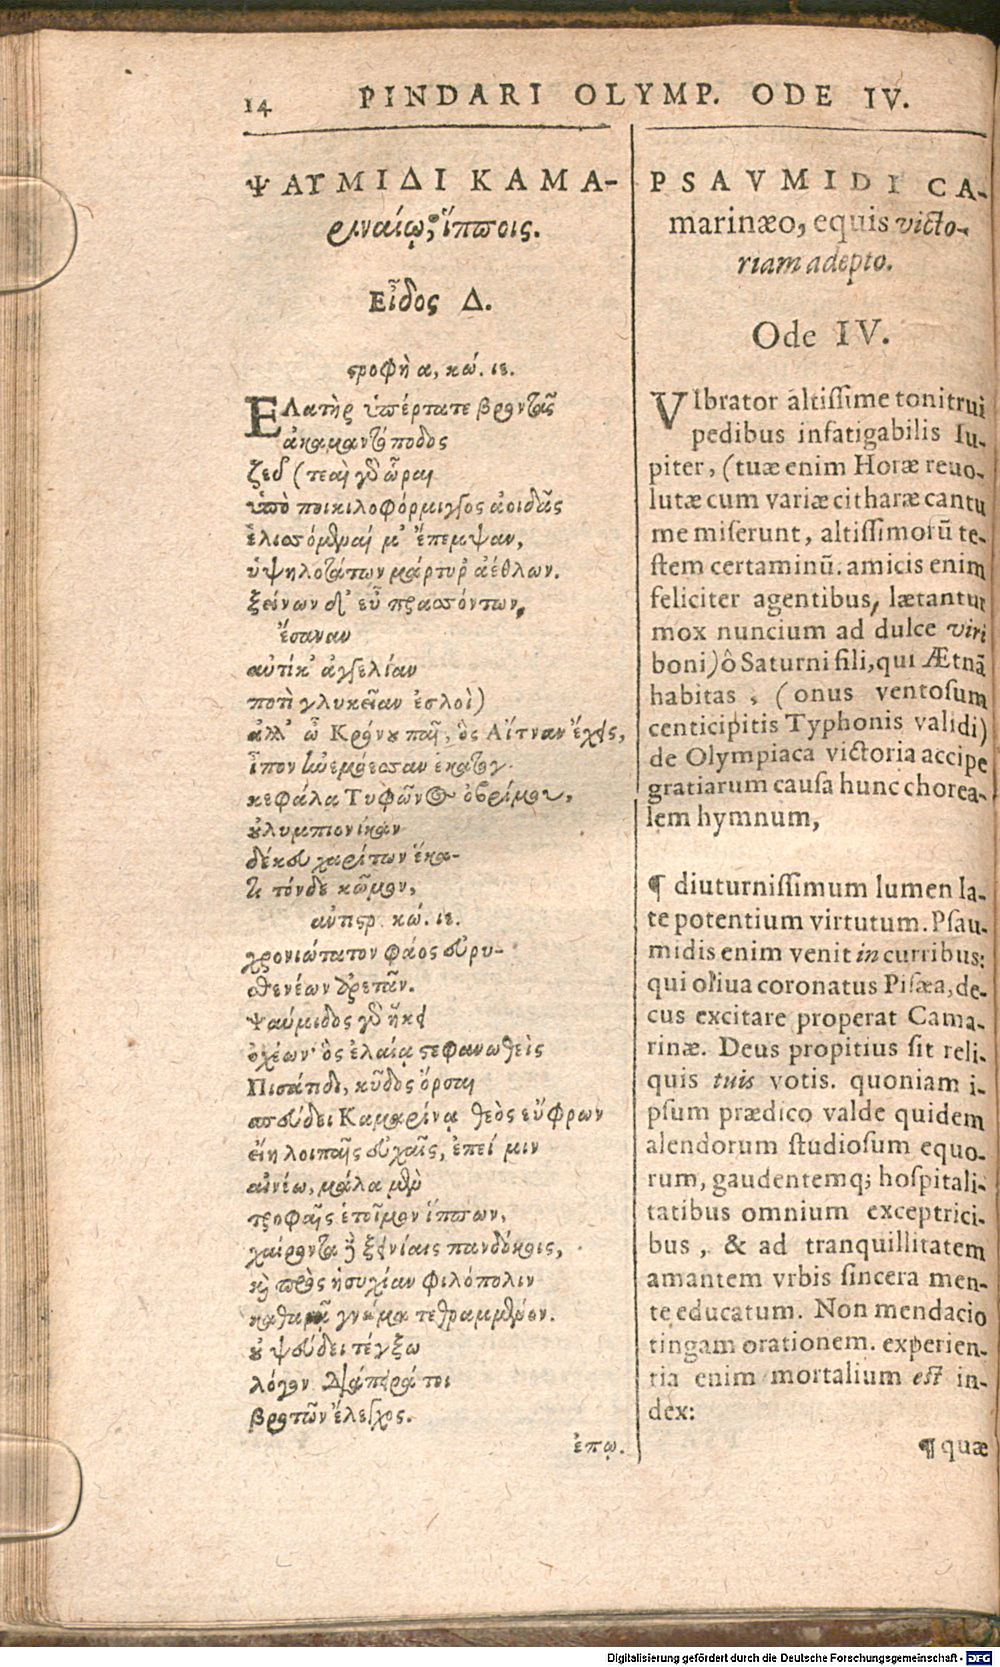 14 PINDARI OLYMP. ODE IV.
ΨΑΥΜΙΔΙ ΚΑΜΑ-
ριναίῳ, ἵπποις.
Εἶδος Δ.
στροφὴ α, κώ. ιε.
ΕΛατὴρ ὑπέρτατε βροντᾶς
ἀκαμαντόποδος
ζεῦ (τεαὶ γδ ὧραι
ὑπὸ ποικιλοφόρμιγγος ἀοιδᾶς
ἑλισσόμεναί μ' ἔπεμψαν,
ὑψηλοτάτων μάρτυρ' ἀέθλων.
ξείνων δ' εὖ πρασσόντων,
ἔσαναν
αὐτίκ' ἀγγελίαν
ποτὶ γλυκεῖαν ἐσλοὶ)
ἀλλ' ὦ Κρόνου παῖ, ὃς Αἴτναν ἔχεις,
ἶπον ἀνεμόεσσαν ἑκατογ-
κεφάλα Τυφῶνος ὀβρίμου,
οὐλυμπιονίκαν
δέκευ χαρίτων ἕκα-
τι τόνδε κῶμον,
ἀντιστρ. κώ. ιε.
χρονιώτατον φάος εὐρυ-
σθενέων ἀρετᾶν.
Ψαύμιδος γδ ἥκει
ὀχέων· ὃς ἐλαίᾳ στεφανωθεὶς
Πισάτιδι, κῦδος ὄρσαι
σπεύδει Καμαρίνᾳ θεὸς εὔφρων
εἴη λοιπαῖς εὐχαῖς, ἐπεί μιν
αἰνέω, μάλα μὲν
τροφαῖς ἑτοῖμον ἵππων,
χαίροντα τε ξενίαις πανδόκοις,
καὶ πρὸς ἡσυχίαν φιλόπολιν
καθαρᾷ γνώμᾳ τετραμμένον.
οὐ ψεύδει τέγξω
λόγον· Διάπειρά τοι
βροτῶν ἔλεγχος.
ἐπῳ.
PSAVMIDI CA-
marinæo, equis victo-
riam adepto.
Ode IV.
VIbrator altissime tonitrui
pedibus infatigabilis Iu-
piter, (tuæ enim Horæ reuo-
lutæ cum variæ citharæ cantu
me miserunt, altissimorū te-
stem certaminū. amicis enim
feliciter agentibus, lætantur
mox nuncium ad dulce viri
boni) ô Saturni fili, qui Ætnā
habitas, (onus ventosum
centicipitis Typhonis validi)
de Olympiaca victoria accipe
gratiarum causa hunc chorea-
lem hymnum,
¶ diuturnissimum lumen la-
te potentium virtutum. Psau-
midis enim venit in curribus:
qui oliua coronatus Pisæa, de-
cus excitare properat Cama-
rinæ. Deus propitius sit reli-
quis tuis votis. quoniam i-
psum prædico valde quidem
alendorum studiosum equo-
rum, gaudentemq; hospitali-
tatibus omnium exceptrici-
bus, & ad tranquillitatem
amantem vrbis sincera men-
te educatum. Non mendacio
tingam orationem. experien-
tia enim mortalium est in-
dex:
¶ quæ
Digitalisierung gefördert durch die Deutsche Forschungsgemeinschaft - DFG